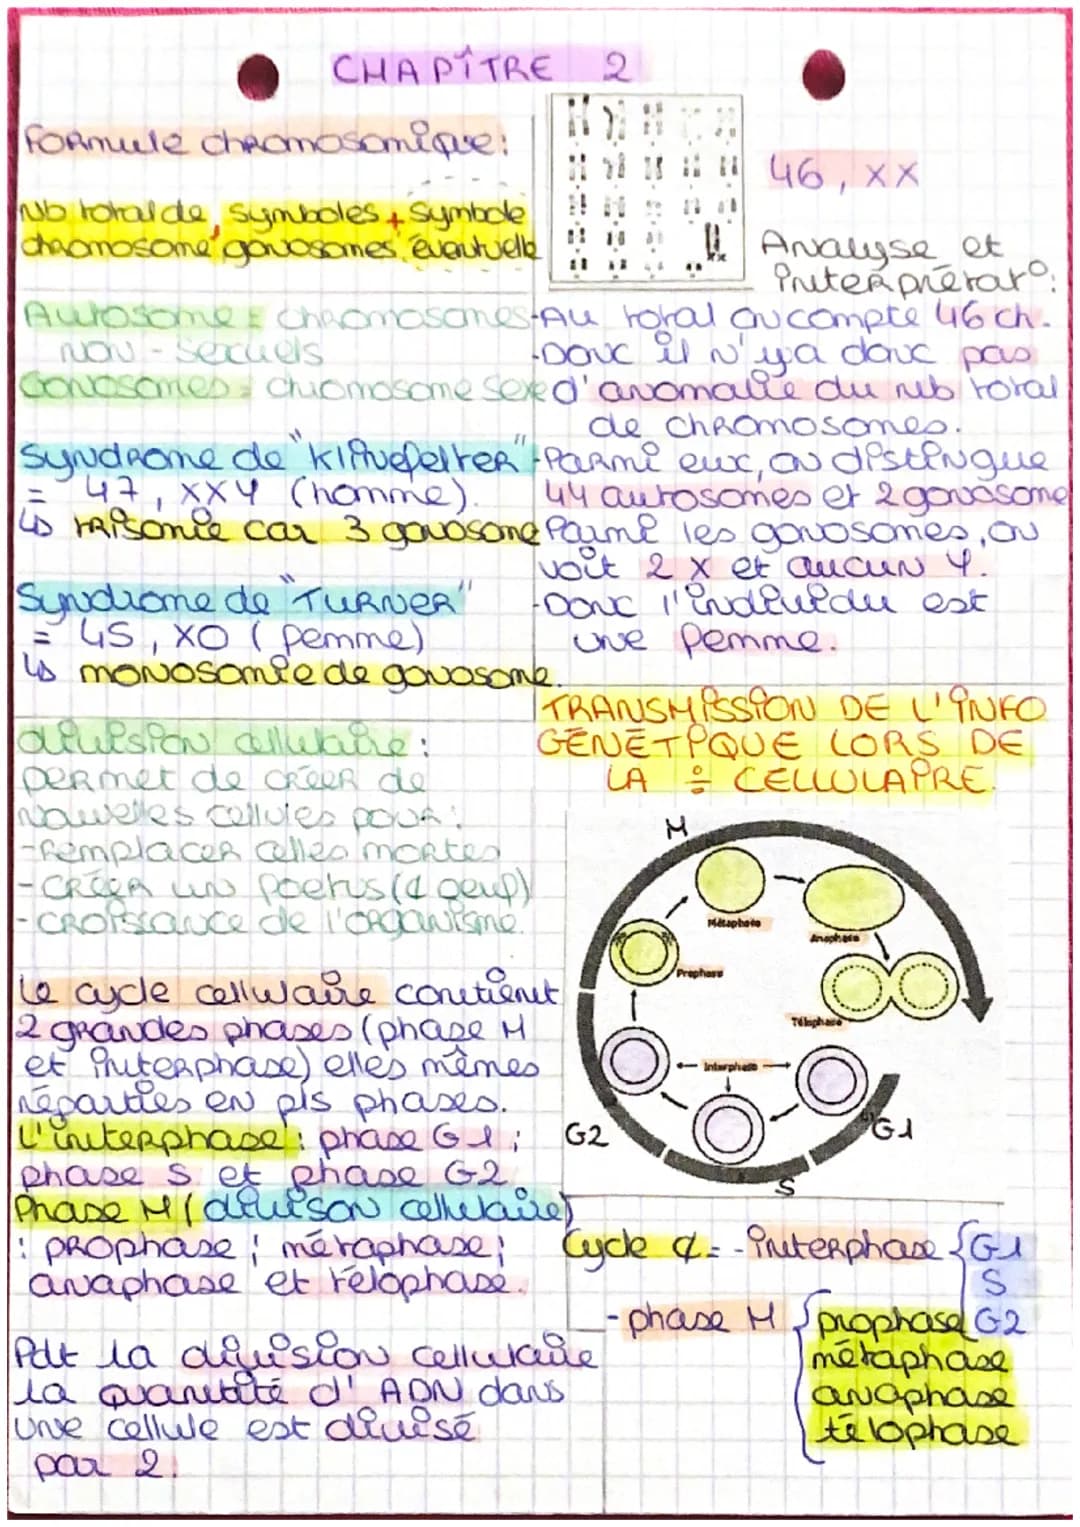 CHAPITRE 2
Formule chromosomique:
Nb total de, symboles + symbole
chromosome gonosomes éventuelle
46, XX
Analyse et
interprétat°:
Autosome = chromosomes
non-sexuels
Gonosomes = chromosome sexe
Syndrome de "Klinefelter"
= 47, XXY (homme).
↳ trisomie car 3 gonosome
Syndrome de "TURNER"
= 45, XO (femme)
↳ monosomie de gonosome.
-Au total on compte 46 ch.
-Donc il n'y a donc pas
d'anomalie du nb total
de chromosomes.
-Parmi eux, on distingue
44 autosomes et 2 gonosome
Parmi les gonosomes, on
voit 2 X et aucun Y.
-Donc l'individu est
une femme.
division cellulaire:
permet de créer de
nouvelles cellules pour:
-remplacer celles mortes
-créer un foetus (¢ oeuf)
-croissance de l'organisme.
Le cycle cellulaire contient
2 grandes phases (phase M
et interphase) elles mêmes
réparties en pls phases.
L'interphase: phase G1;
phase S et phase G2
Phase M (divison cellulaire)
: prophase; métaphase;
anaphase et télophase.
Pdt la division cellulaire
la quantité d'ADN dans
une cellule est divisé
par 2.
TRANSMISSION DE L'INFO
GÉNÉTIQUE LORS DE
LA ÷ CELLULAIRE.
M
Métaphase
Anaphase
Prophase
Télophase
Interphase
G2
G1
S
Cycle ¢ = -interphase { G1
S
G2
-phase M { prophase
métaphase
anaphase
télophase